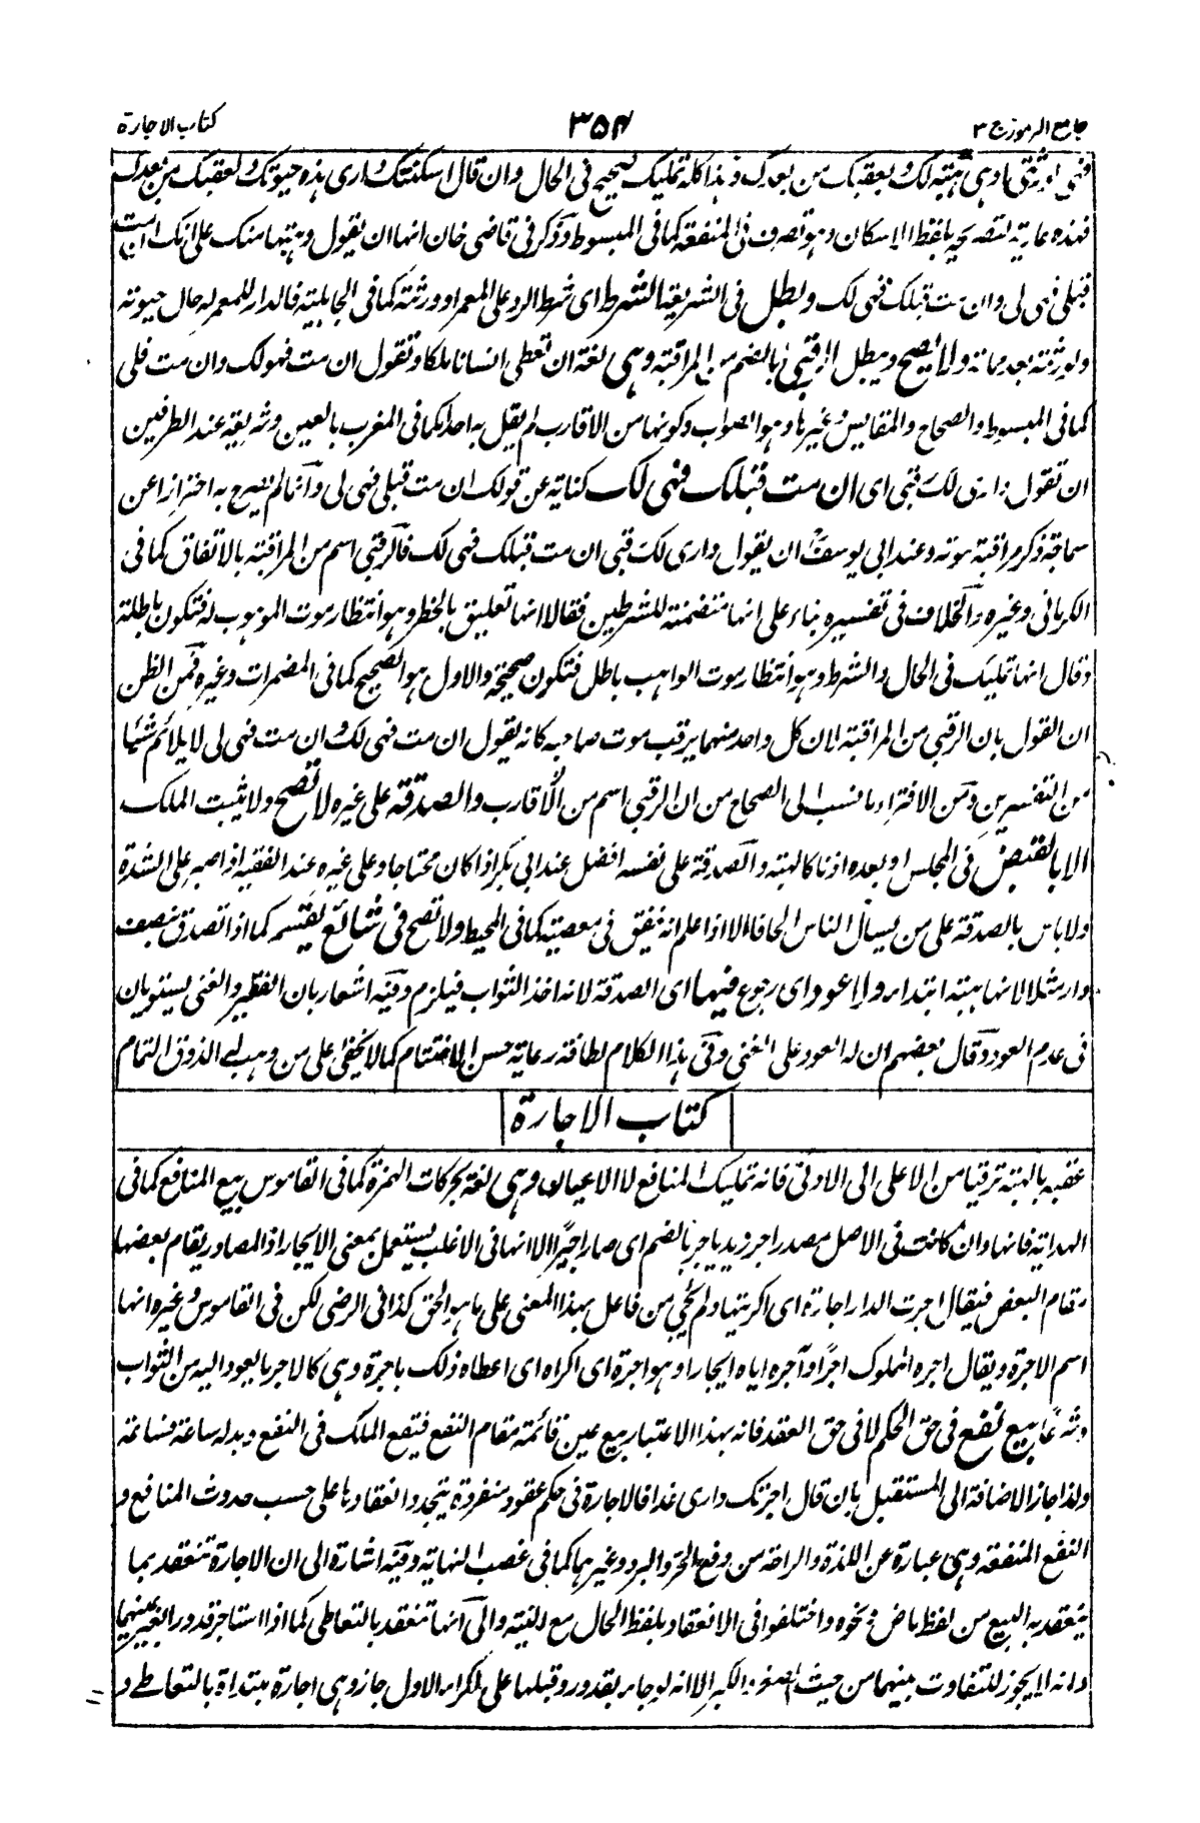 جامع الرموز ج ٣
٣٥٤
كتاب الاجارة
فهى لورثتى او هى هبة لك ولعقبك من بعدك وهذا كله تمليك صحيح فى الحال وان قال اسكنتك دارى هذه حيوتك ولعقبك من بعدك
فهذه عارية لتصريحه بلفظ الاسكان وهو تصرف فى المنفعة كما فى المبسوط وذكر فى قاضى خان انها ان يقول وهبتها منك على انك ان مت
قبلى فهى لى وان مت قبلك فهى لك وبطل فى الشريعة الشرط اى شرط الرد على المعمر او ورثته كما فى الجاهلية فالدار للمعمر له حال حيوته
ولورثته بعد مماته ولا يصح ويبطل الرقبى بالضم من المراقبة وهى لغة ان تعطى انسانا ملكا وتقول ان مت فهو لك وان مت فلى
كما فى المبسوط والصحاح والمقاييس وغيرها وهو الصواب وكونها من الاقارب لم يقل به احد كما فى المغرب بالعين وشريعة عند الطرفين
ان تقول دارى لك رقبى اى ان مت قبلك فهى لك كناية عن قولك ان مت قبلى فهى لى وانما لم يصرح به احترازا عن
سماجة ذكر مراقبة موته وعند ابى يوسف ان يقول دارى لك رقبى ان مت قبلك فهى لك فالرقبى اسم من المراقبة بالاتفاق كما فى
الكرمانى وغيره والخلاف فى تفسيره بناء على انها متضمنة للشرطين فقالا انها تعليق بالخطر وهو انتظار موت الموهوب له فتكون باطلة
وقال انها تمليك فى الحال والشرط وهو انتظار موت الواهب باطل فتكون صحيحة والاول هو الصحيح كما فى المضمرات وغيره فمن الظن
ان القول بان الرقبى من المراقبة لان كل واحد منهما يرقب موت صاحبه كانه يقول ان مت فهى لك وان مت فهى لى لا يلائم شيئا
من التفسيرين ومن الافتراء ما نسب الى الصحاح من ان الرقبى اسم من الاقارب والصدقة على غيره لا تصح ولا يثبت الملك
الا بالقبض فى المجلس او بعده اذنا كالهبة والصدقة على نفسه افضل عند ابى بكر اذا كان محتاجا وعلى غيره عند الفقيه اذا صبر على الشدة
ولا باس بالصدقة على من يسال الناس الحافا الا اذا علم انه ينفق فى معصية كما فى المحيط ولا تصح فى شائع يقسم كما اذا تصدق بنصف
دار مثلا لانها هبة ابتداء ولا عود اى رجوع فيها اى الصدقة لانه اخذ الثواب فيلزم وفيه اشعار بان الفقير والغنى يستويان
فى عدم العود وقال بعضهم ان له العود على الغنى وفى هذا الكلام لطافة رعاية حسن الاختتام كما لا يخفى على من وهب له الذوق التمام
كتاب الاجارة
عقبه بالهبة ترقيا من الاعلى الى الادنى فانه تمليك المنافع لا الاعيان وهى لغة بحركات الهمزة كما فى القاموس بيع المنافع كما فى
الهداية فانها وان كانت فى الاصل مصدر اجر زيد ياجر بالضم اى صار اجيرا الا انها فى الاغلب يستعمل بمعنى الايجار اذ المصادر يقام بعضها
مقام البعض فيقال اجرت الدار اجارة اى اكريتها ولم يجئ من فاعل بهذا المعنى على ما هو الحق كذا فى الرضى لكن فى القاموس وغيره انها
اسم الاجرة ويقال اجره المملوك اجرا وآجره اياه ايجارا وهو اجرة اى اكراه اى اعطاه ذلك باجرة وهى كالاجر ما يعود اليه من الثواب
وشرعا بيع نفع فى حق الحكم لا فى حق العقد فانه بهذا الاعتبار بيع عين قائمة مقام النفع فيقع الملك فى النفع وبدله ساعة فساعة
ولذا جاز الاضافة الى المستقبل بان قال اجرتك دارى غدا فالاجارة فى حكم عقود متفرقة يتجدد انعقادها على حسب حدوث المنافع و
النفع المنفعة وهى عبارة عن اللذة والراحة من دفع الحر والبرد وغيرهما كما فى غصب النهاية وفيه اشارة الى ان الاجارة تنعقد بما
ينعقد به البيع من لفظ ماض ونحوه واختلفوا فى الانعقاد بلفظ الحال مع النية والى انها تنعقد بالتعاطى كما اذا استاجر قدور ا بغير عينها
وانه لا يجوز للتفاوت بينهما من حيث الصغر والكبر الا انه لو جاء بقدور وقبلها على الكراء الاول جاز وهى اجارة مبتداة بالتعاطے و